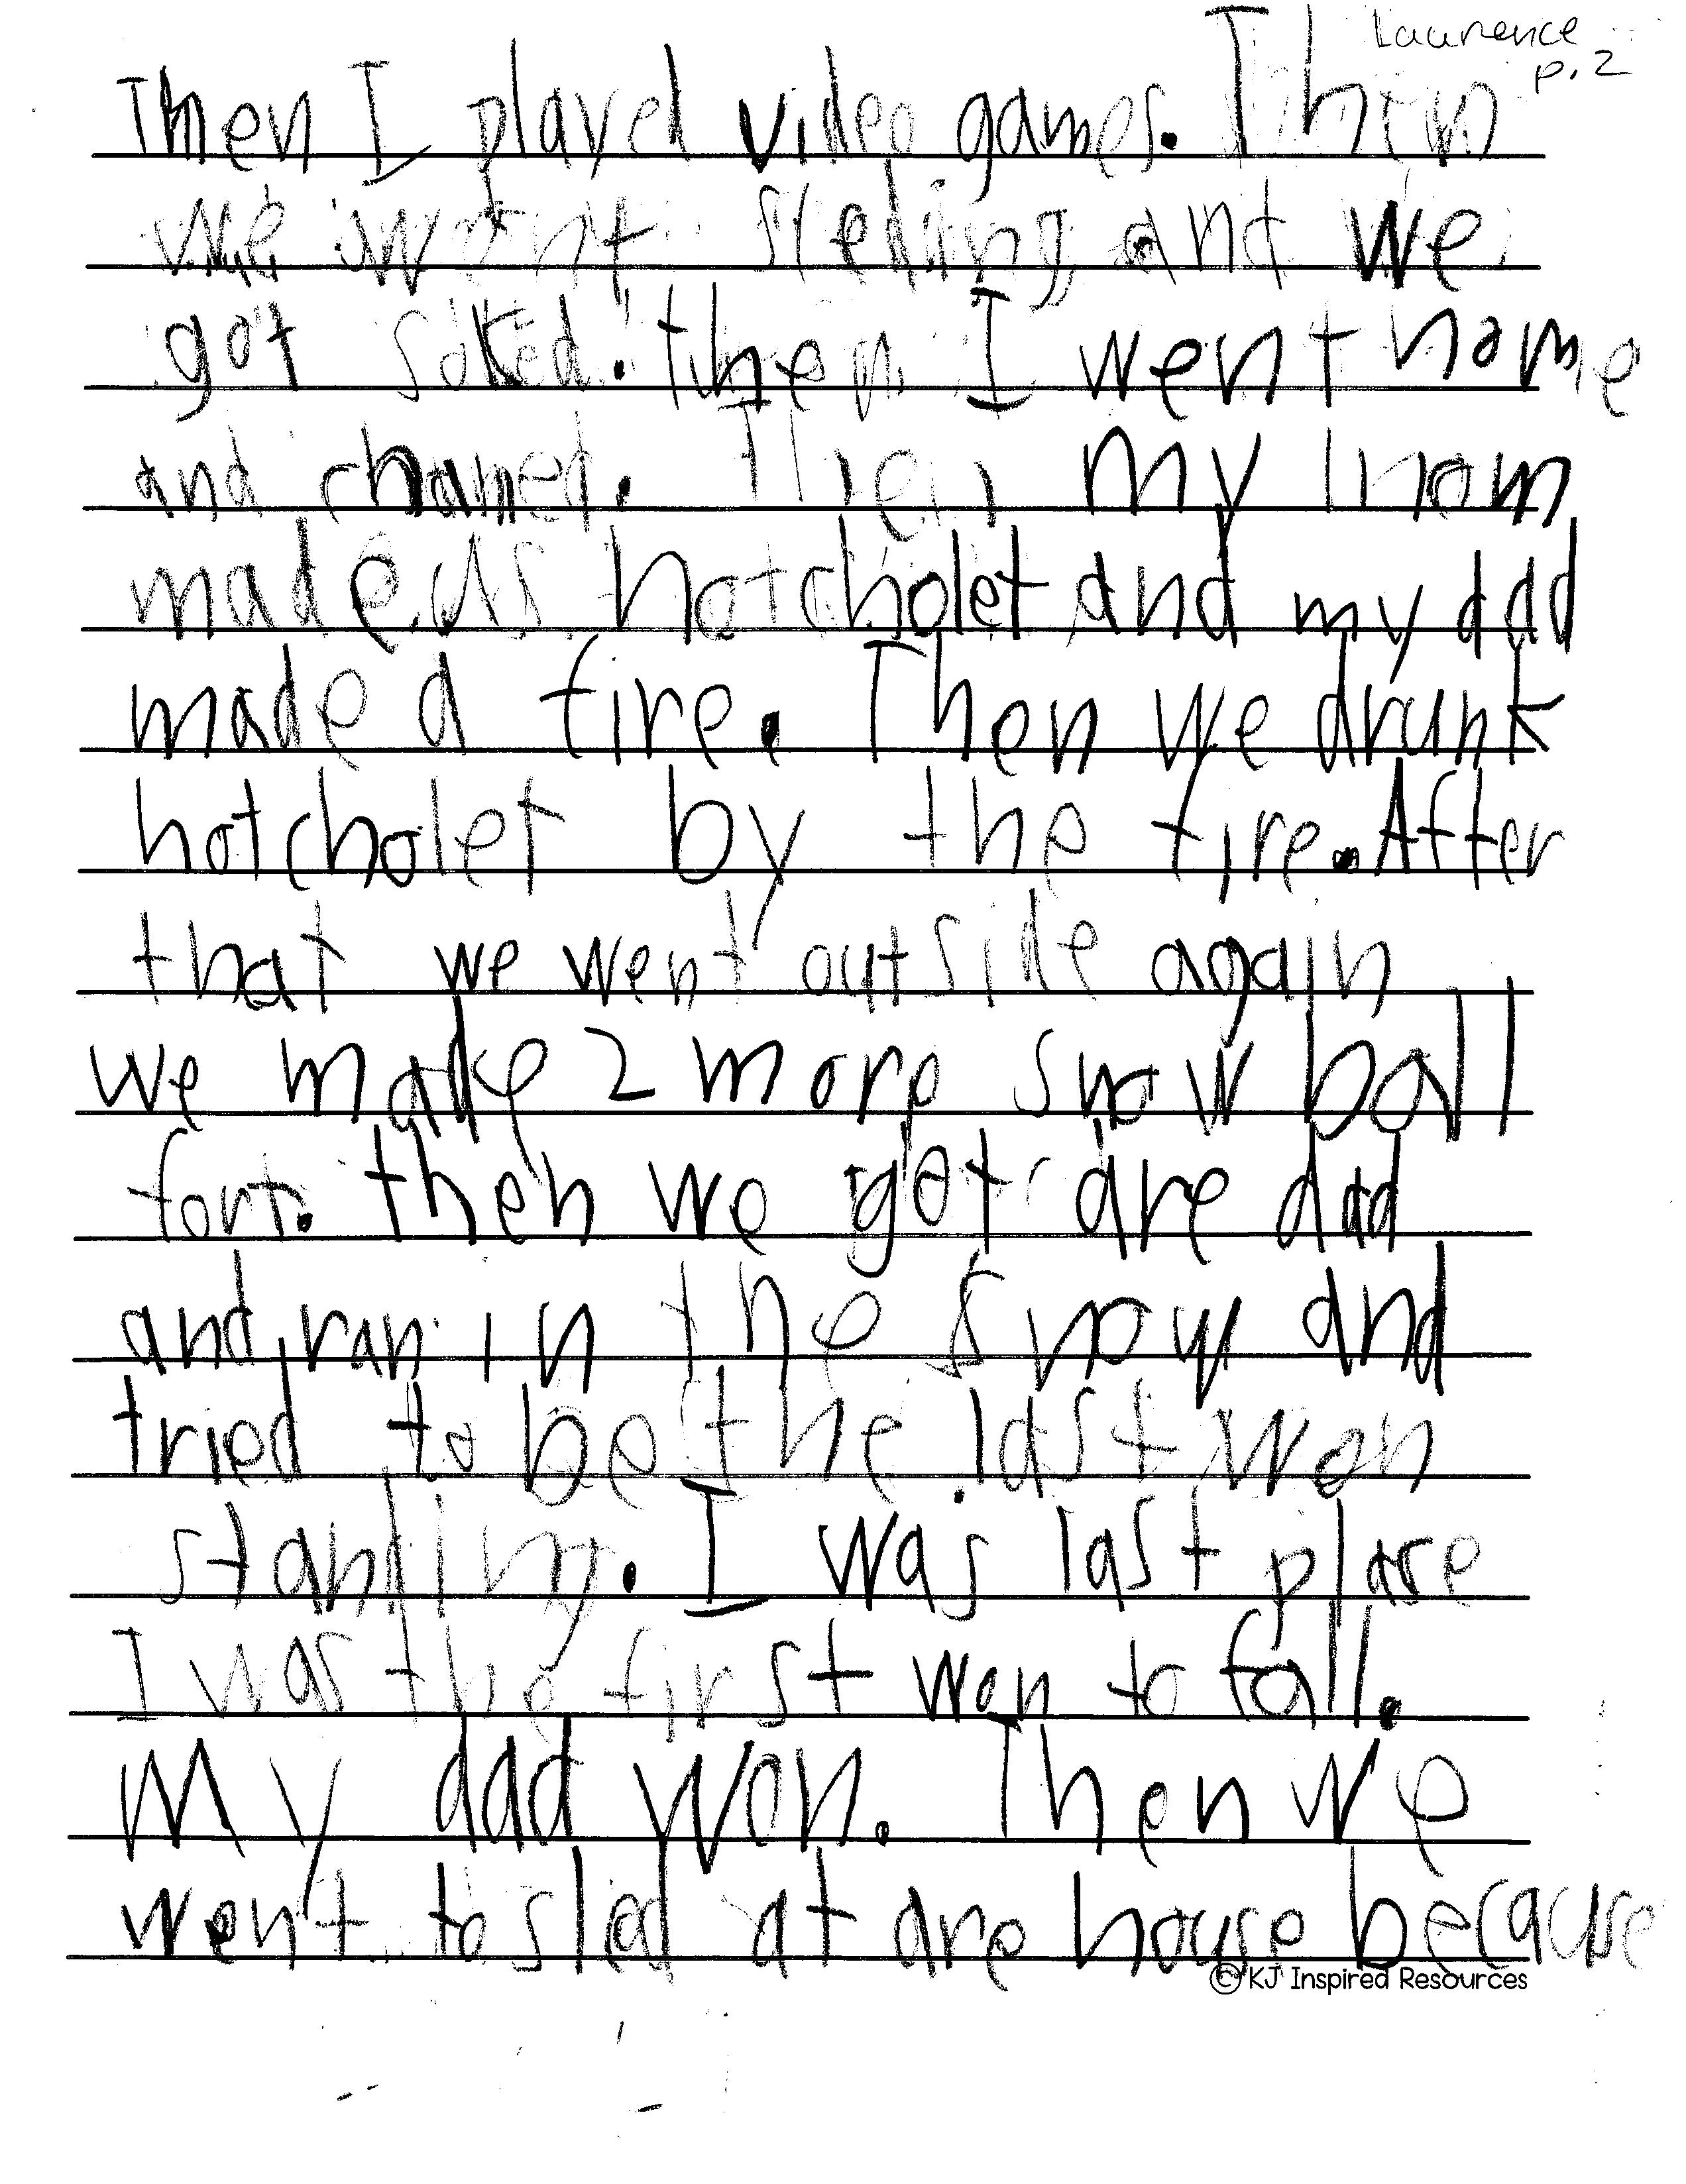 Lawrence
p. 2
Then I played video games. Then
we went sleding and we
got soked. then I went home
and chamed. Then my mom
made us hotcholet and my dad
made a fire. Then we drunk
hotcholet by the fire. After
that we went outside again
we made 2 more snow ball
fort. then we got are dad
and ran in the snow and
tried to be the last won
standing. I was last place
I was the first won to fall.
My dad won. Then we
went to sled at are house because
© KJ Inspired Resources